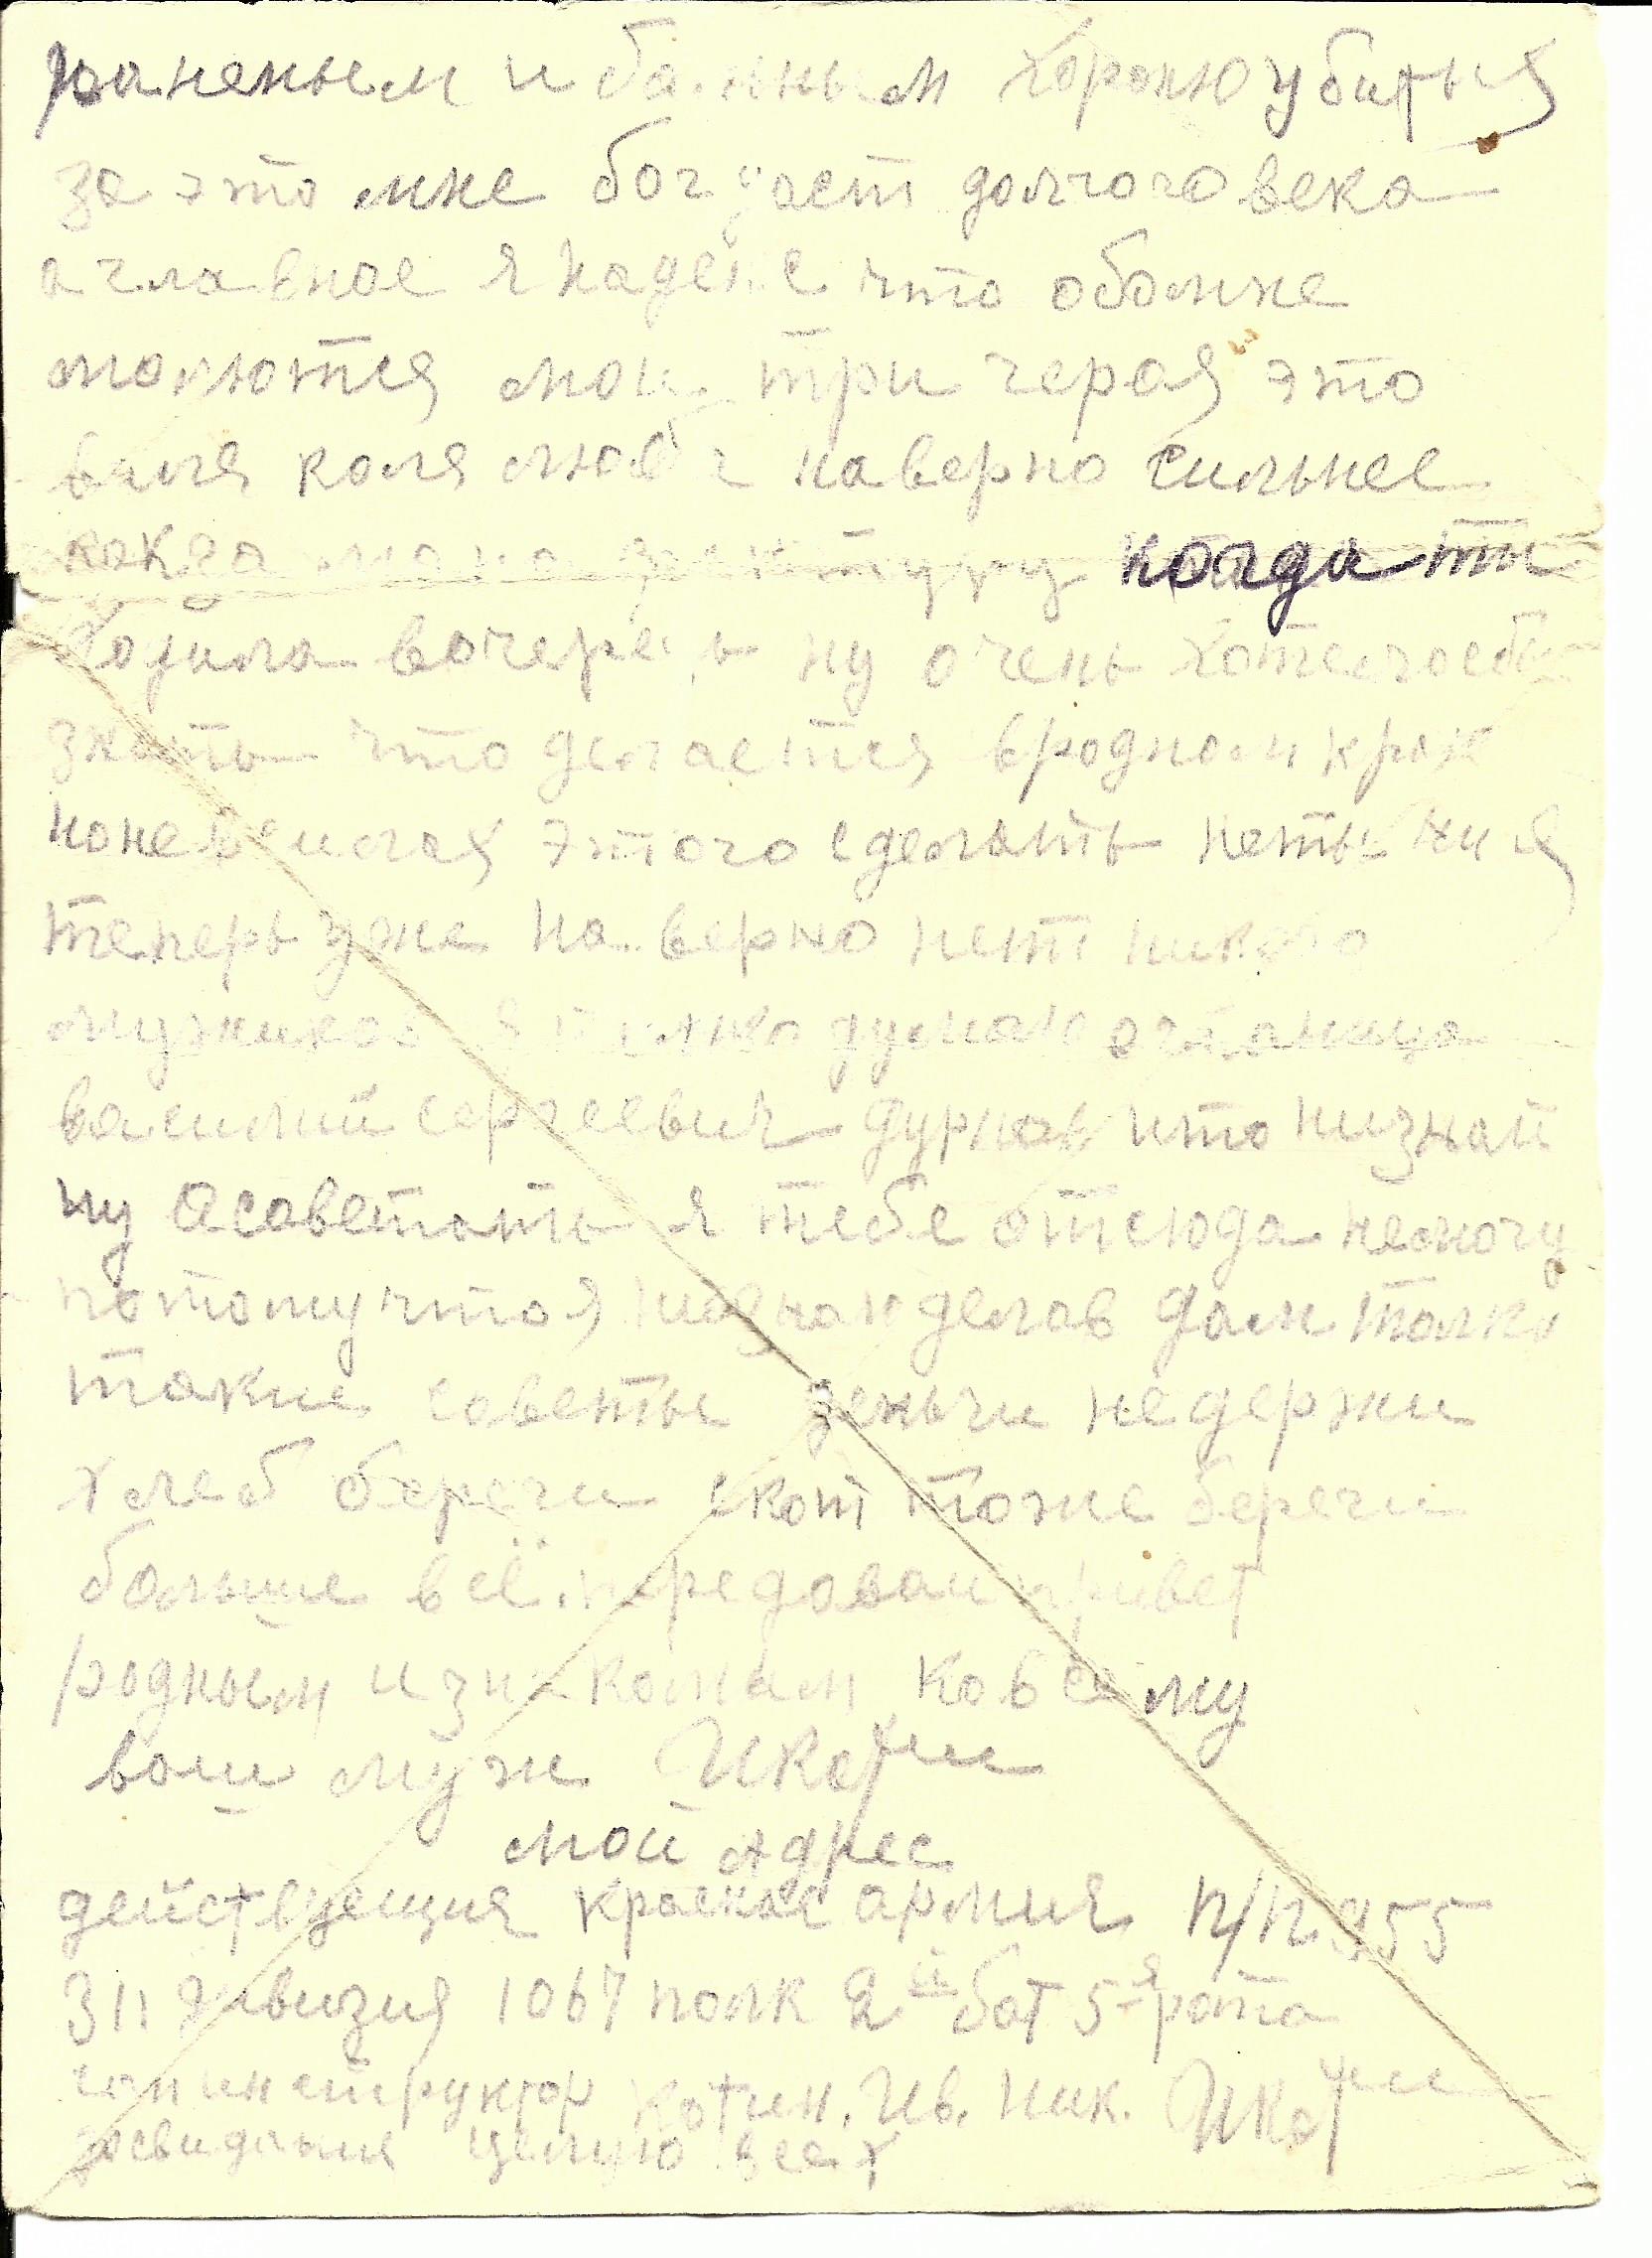 раненым и больным хороню убитых
за это мне бог даст долгого века
а главное я надеюс что обомне
молютця мои три героя это
валя коля люба наверно сильнее
как за мамо
когда ты
ходила вечерем ну очень хотелос бы
знать что делаетця вродном крае
но невсилах этого сделать петьки
теперь уже наверно нет никого
мужиков я только думаю остался
василий сергеевич дурнов што низнай
ну а советать я тебе отсюда немогу
потому что я незнаю делов дам толко
такие советы деньги недержи
хлеб береги скот тоже береги
больше всё передавай привет
родным и знакомым ковсему
ваш муж ИКоти
мой адрес
действующия красная армия п/п 355
311 дивизия 1067 полк 2й бат 5-я рота
санинструктор Котин. Ив. Ник. ИКоти
досвидания целую всех